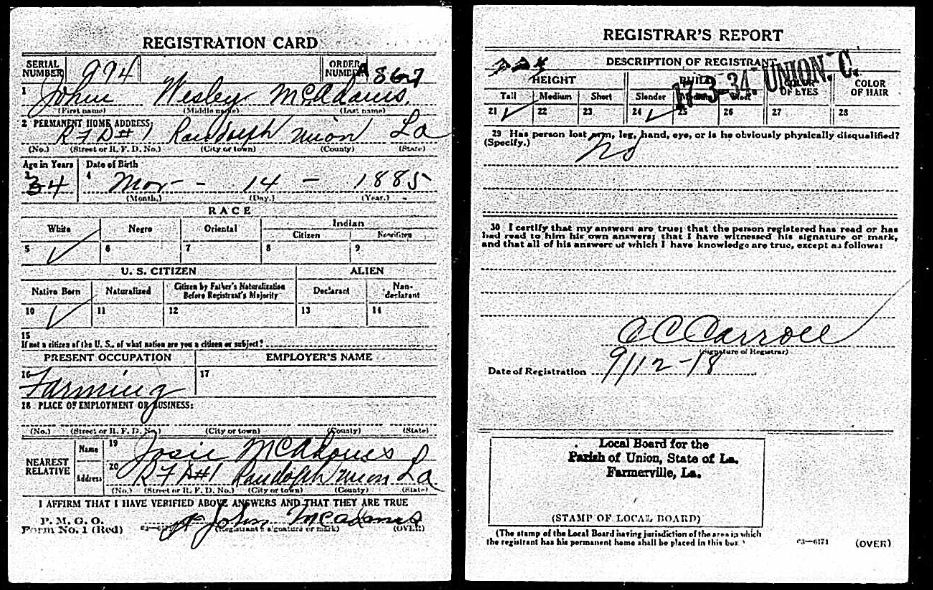 REGISTRATION CARD
SERIAL NUMBER 994
ORDER NUMBER A 867
1 John Wesley McAdams,
(First name) (Middle name) (Last name)
2 PERMANENT HOME ADDRESS:
R F D #1 Randolph Union La
(No.) (Street or R. F. D. No.) (City or town) (County) (State)
Age in Years Date of Birth
3 34 4 Mar - 14 - 1885
(Month.) (Day.) (Year.)
RACE
White Negro Oriental Indian
Citizen Noncitizen
5 6 7 8 9
U. S. CITIZEN ALIEN
Native Born Naturalized Citizen by Father's Naturalization Before Registrant's Majority Declarant Non-declarant
10 11 12 13 14
15
If not a citizen of the U. S., of what nation are you a citizen or subject?
PRESENT OCCUPATION EMPLOYER'S NAME
16 Farming 17
18 PLACE OF EMPLOYMENT OR BUSINESS:
(No.) (Street or R. F. D. No.) (City or town) (County) (State)
NEAREST RELATIVE
Name 19 Josie McAdams
Address 20 R F D #1 Randolph Union La
(No.) (Street or R. F. D. No.) (City or town) (County) (State)
I AFFIRM THAT I HAVE VERIFIED ABOVE ANSWERS AND THAT THEY ARE TRUE
P. M. G. O.
Form No. 1 (Red) John McAdams
(Registrant's signature or mark) (OVER)
REGISTRAR'S REPORT
DESCRIPTION OF REGISTRANT
17-3-34. UNION. C.
HEIGHT BUILD COLOR OF EYES COLOR OF HAIR
Tall Medium Short Slender Medium Stout
21 22 23 24 25 26 27 28
29 Has person lost arm, leg, hand, eye, or is he obviously physically disqualified?
(Specify.) No
30 I certify that my answers are true; that the person registered has read or has
had read to him his own answers; that I have witnessed his signature or mark,
and that all of his answers of which I have knowledge are true, except as follows:
C C Carroll
(Signature of Registrar)
Date of Registration 9/12-18
Local Board for the
Parish of Union, State of La.
Farmerville, La.
(STAMP OF LOCAL BOARD)
(The stamp of the Local Board having jurisdiction of the area in which
the registrant has his permanent home shall be placed in this box.)
03-6171 (OVER)